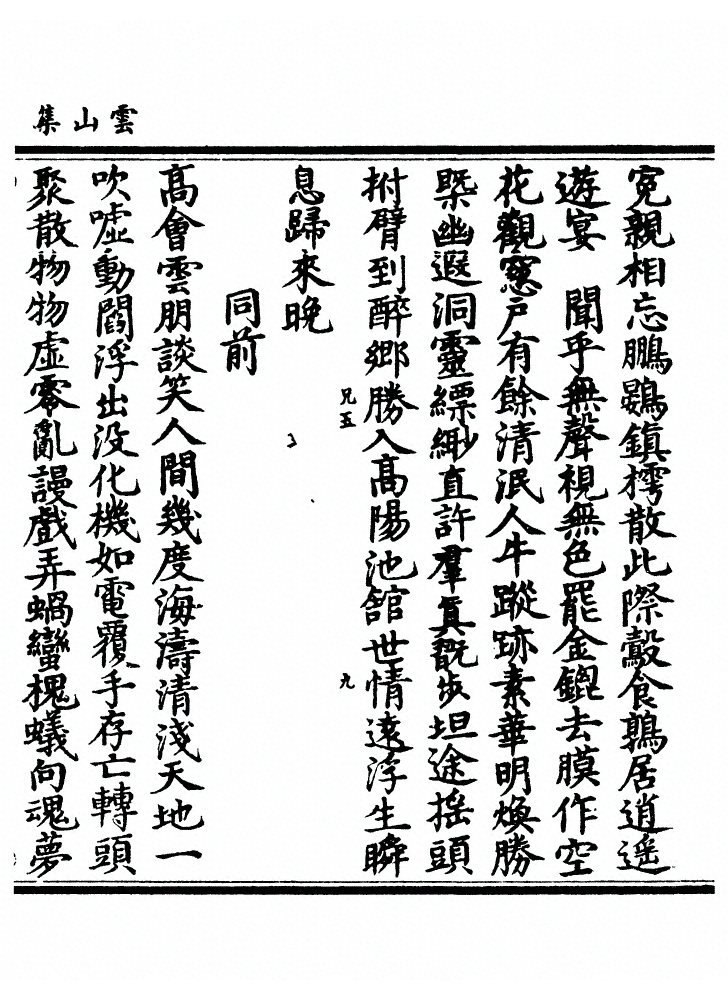 雲山集
寃親相忘鵬鷃鎮樗散此際鷇食鶉居逍遥
遊宴　聞乎無聲視無色罷金鎞去膜作空
花觀窻戶有餘清泯人牛蹤跡素華明煥勝
槩幽遐洞靈縹緲直許羣真翫步坦途揺頭
拊臂到醉鄉勝入高陽池舘世情逺浮生瞬
息歸來晚
同前
高會雲朋談笑人間幾度海濤清淺天地一
吹噓動閻浮出没化機如電覆手存亡轉頭
聚散物物虛零亂謾戲弄蝸蠻槐蟻向魂夢
兄五
九